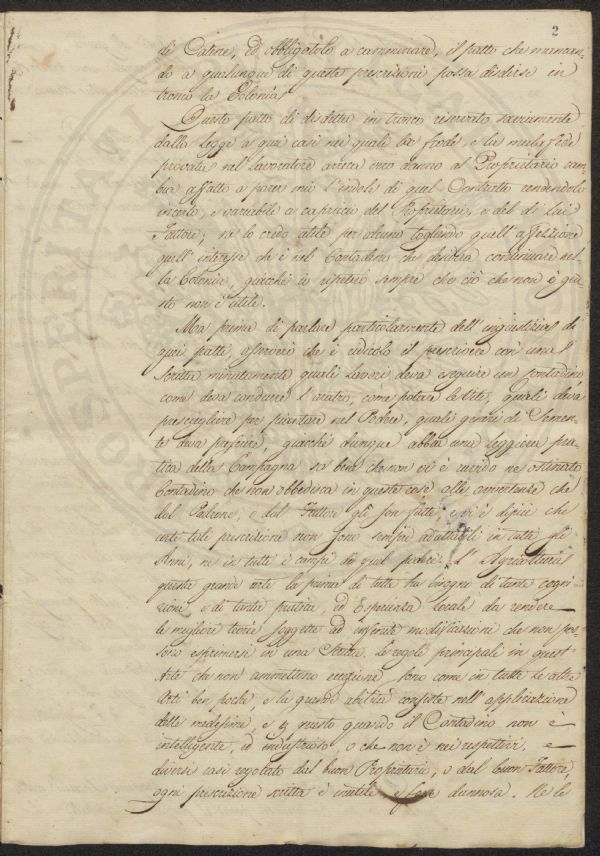 2
di Catene, ed obbligatolo a camminare, il patto che mancan-
do a qualunque di queste prescrizioni possa disdirsi in
tronco la Colonia.
Questo patto di disdetta in tronco riservato saviamente
dalla legge a quei casi nei quali la frode, e la mala fede
provata nel Lavoratore arreca vero danno al Proprietario cam-
bia affatto a parer mio l'indole di quel Contratto rendendolo
incerto, e variabile a capriccio del Proprietario, o del di lui
Fattore; nè lo credo utile per alcuno togliendo quell'affezione
quell'interesse che è nel Contadino che desidera continuare nel-
la Colonia, giacchè io ripeterò sempre che ciò che non è giu-
sto non è utile.
Ma prima di parlare particolarmente dell'ingiustizia di
quei patti, osserverò che è ridicolo il prescrivere con una
Scritta minutamente quali lavori deva eseguire un contadino
come deva condurre l'aratro, come potare le viti, quali deva
prescegliere per piantare nel Podere, quali generi di Semen-
te deva preferire, giacchè chiunque abbia una leggiera pra-
tica della Campagna sa bene che non vi è ruvido nè ostinato
Contadino che non obbedisca in queste cose alle avvertenze che
dal Padrone, o dal Fattore gli son fatte, e vi è di più che
certe tali prescrizioni non sono sempre adattabili in tutti gli
Anni, nè in tutti i campi di quel podere. L'Agricoltura
questa grande arte la prima di tutte ha bisogno di tante cogni-
zioni, e di tanta pratica, ed Esperienza locale da rendere
le migliori teorie soggette ad infinite modificazioni che non pos-
sono esprimersi in una Scritta. Le regole principali in quest'
Arte che non ammettono eccezione, sono come in tutte le altre
Arti ben poche, e la grande abilità consiste nell'applicazione
delle medesime, e questo quando il Contadino non è
intelligente, ed industrioso, o che non è nei respettivi, e
diversi casi regolato dal buon Proprietario, o dal buon Fattore,
ogni prescrizione scritta è inutile e forse dannosa. Nè le